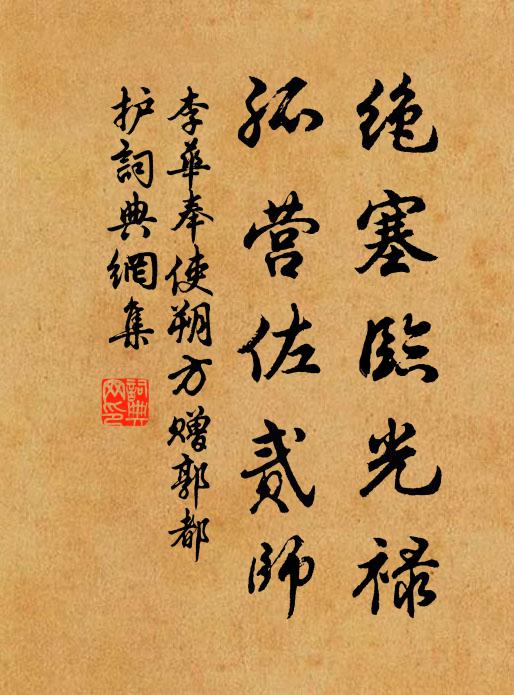 绝塞临光禄
孤营佐贰师
李华奉使朔方赠郭都
护詞典網集
詞典
网印